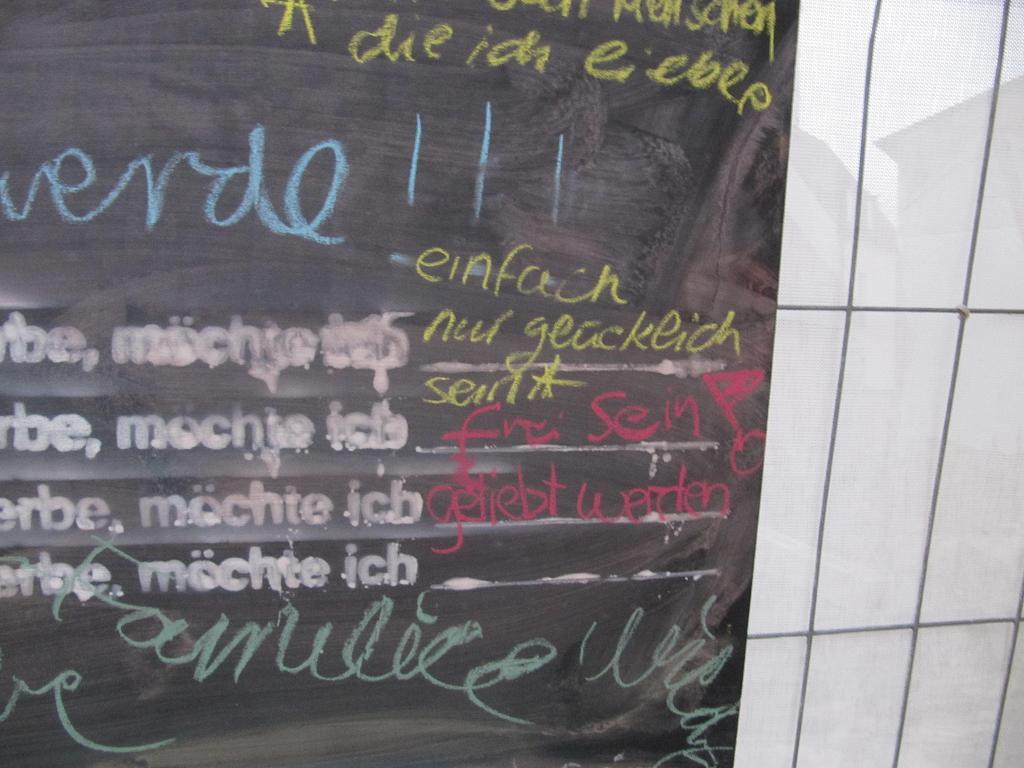 Menschen
die ich liebe
werde!!!
einfach
rbe, möchte ich nur glücklich
sein!
rbe, möchte ich frei sein!
erbe, möchte ich geliebt werden
erbe, möchte ich
Familie